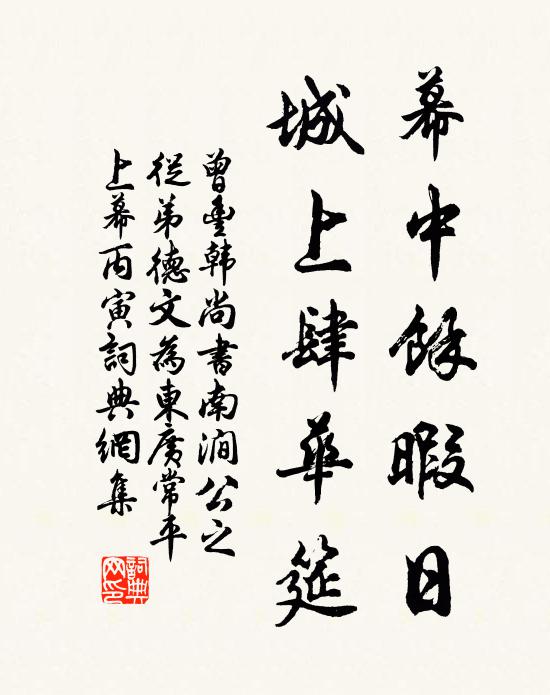 幕中餘暇日
城上肆華筵
曾豊韓尚書南澗公之
從弟德文為東廣常平
上幕丙寅詞典網集
詞典网印